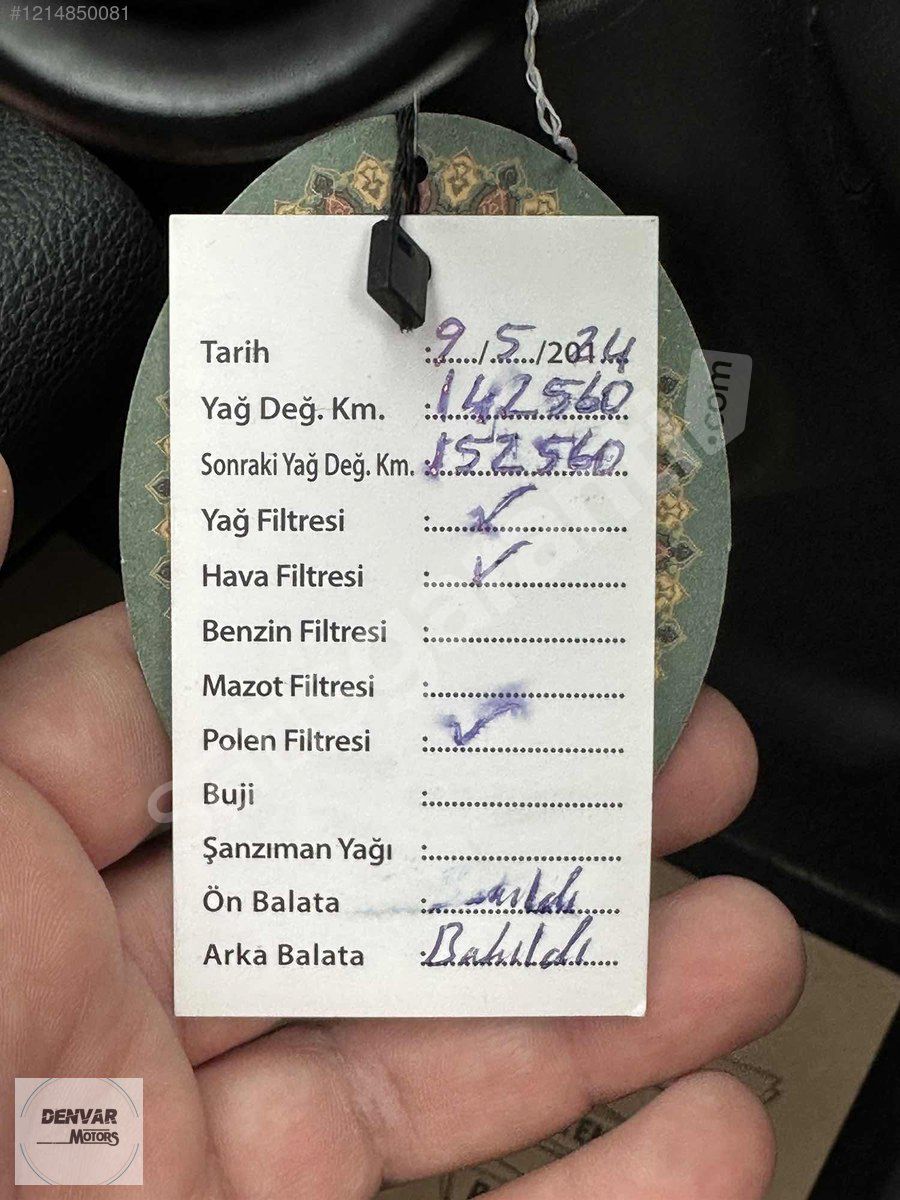 #1214850081
Tarih :9/5/2024
Yağ Değ. Km. :142560
Sonraki Yağ Değ. Km. :152560
Yağ Filtresi :✓
Hava Filtresi :✓
Benzin Filtresi :
Mazot Filtresi :
Polen Filtresi :✓
Buji :
Şanzıman Yağı :
Ön Balata :
Arka Balata :Bakıldı
.com
DENVAR
MOTORS